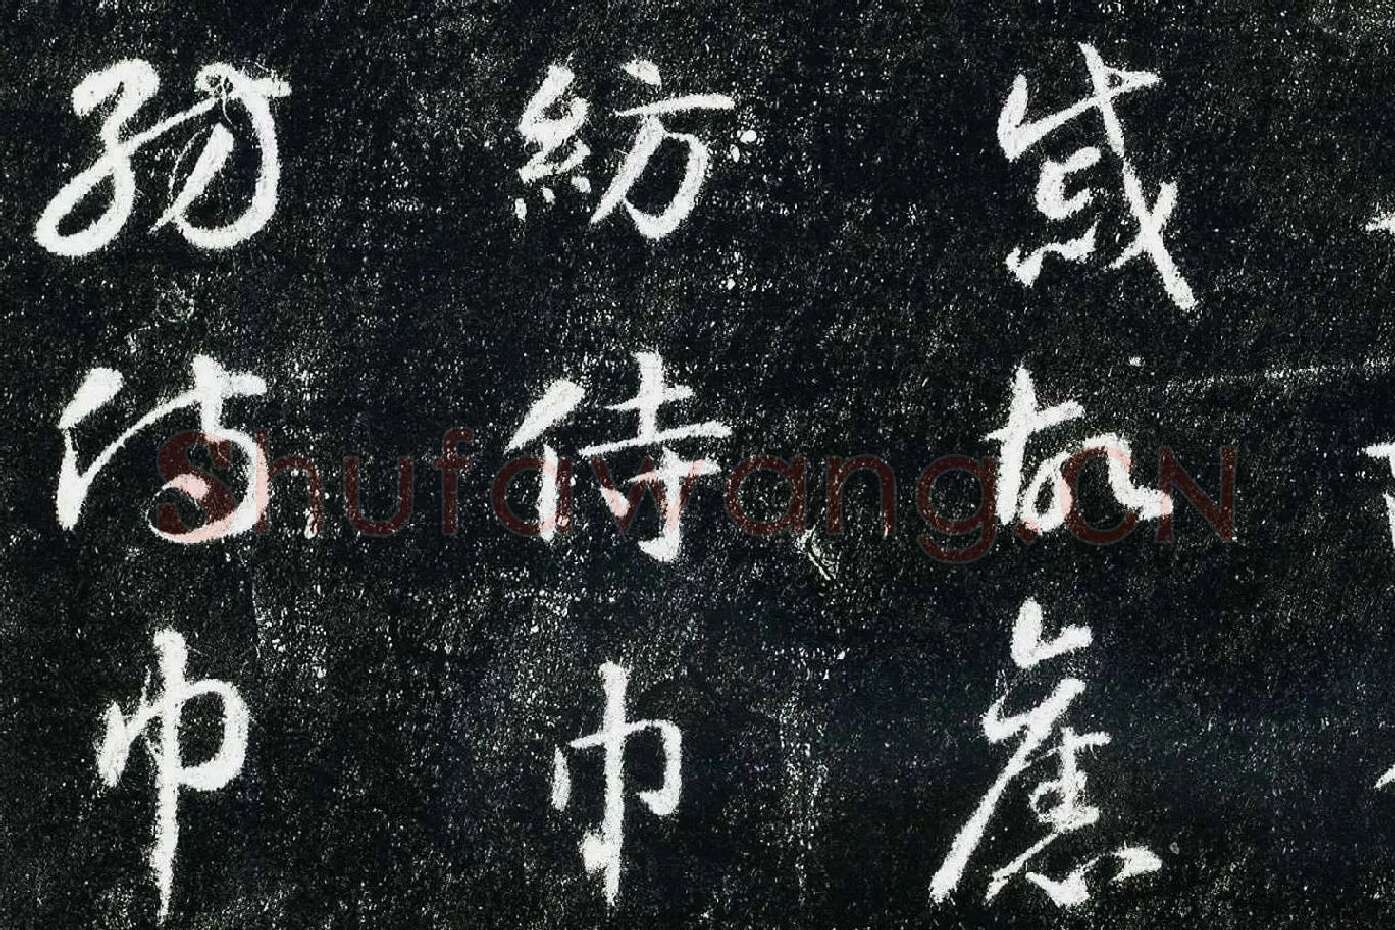 戚故舊
紡侍巾
紡侍巾
Shufawang.CN